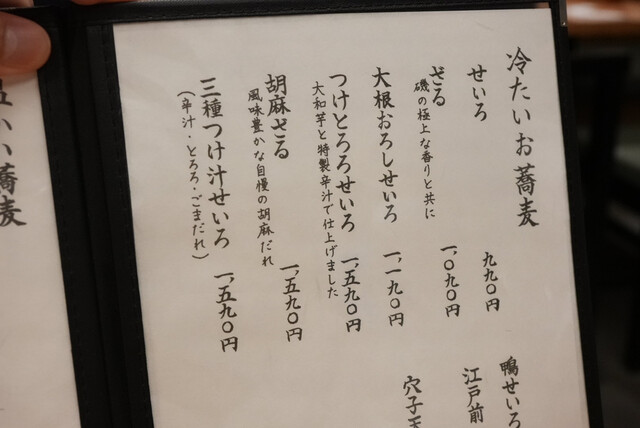 冷たいお蕎麦
せいろ
九九〇円
ざる
磯の極上な香りと共に
一,〇九〇円
大根おろしせいろ
一,一九〇円
つけとろろせいろ
大和芋と特製辛汁で仕上げました
一,五九〇円
胡麻ざる
風味豊かな自慢の胡麻だれ
一,五九〇円
三種つけ汁せいろ
(辛汁・とろろ・ごまだれ)
一,五九〇円
鴨せいろ
江戸前
穴子天
い蕎麦